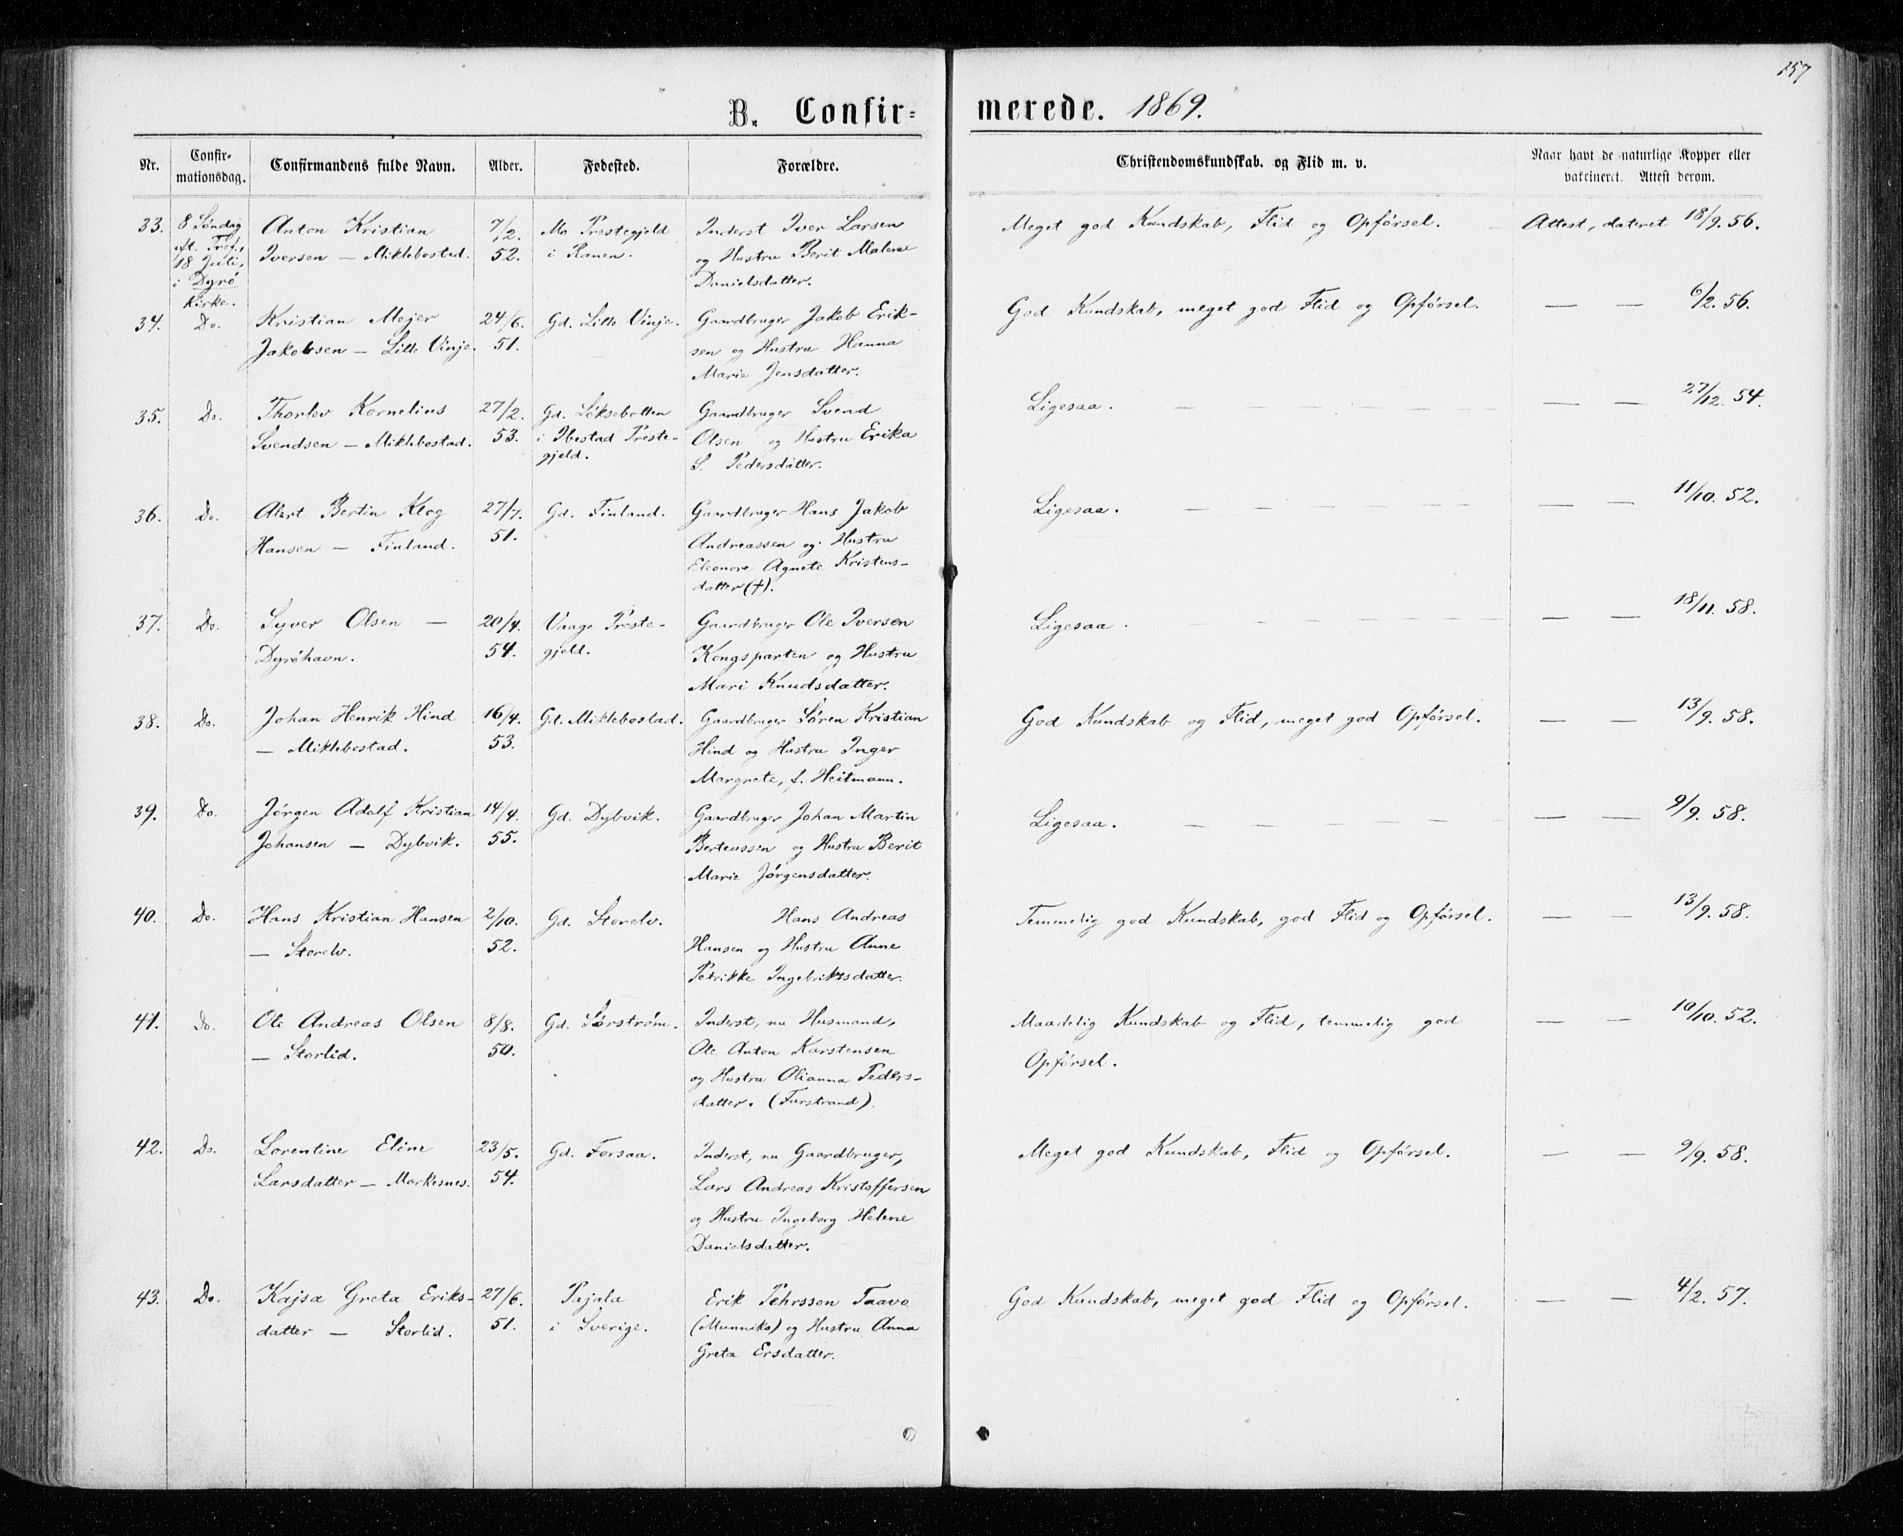 157
B. Confir= merede. 1869.
Nr. Confir-mationsdag. Confirmandens fulde Navn. Alder. Fødested. Forældre. Christendomskundskab. og Flid m. v. Naar havt de naturlige Kopper eller vakcineret. Attest derom.
33. 8 Søndag Anton Kristian 7/2. Mo Prestegjeld Inderst Iver Larsen Meget god Kundskab, Flid og Opførsel. Attest, dateret 18/9. 56.
eft. Tref., Iversen — Miklebostad. 52. i Ranen. og Hustru Berit Malene
18 Juli, Danielsdatter.
i Dyrø
Kirke.
34. Do. Kristian Mejer 24/6. Gd. Lille Vinje. Gaardbruger Jakob Erik- God Kundskab, meget god Flid og Opførsel. — — 6/2. 56.
Jakobsen — Lille Vinje. 51. sen og Hustru Hanna
Marie Jensdatter.
35. Do. Thorlev Kornelius 27/2. Gd. Løksebotten Gaardbruger Svend Ligesaa. — — — — — — 27/12. 54.
Svendsen — Miklebostad. 53. i Ibestad Preste- Olsen og Hustru Erika
gjeld. S. Pedersdatter.
36. Do. Albert Bertin Klog 27/7. Gd. Finland. Gaardbruger Hans Jakob Ligesaa. — — — — — — 11/10. 52.
Hansen — Finland. 51. Andreassen og Hustru
Eleonore Agnete Kristens-
datter (†).
37. Do. Syver Olsen — 20/4. Vaage Preste- Gaardbruger Ole Iversen Ligesaa. — — — — — 18/11. 58.
Dyrøhavn. 54. gjeld. Kongsparten og Hustru
Mari Knudsdatter.
38. Do. Johan Henrik Hind 16/4. Gd. Miklebostad. Gaardbruger Søren Kristian God Kundskab og Flid, meget god Opførsel. — — 13/9. 58.
— Miklebostad. 53. Hind og Hustru Inger
Margrete, f. Heitmann.
39. Do. Jørgen Adolf Kristian 14/4. Gd. Dybvik. Gaardbruger Johan Martin Ligesaa. — — — — — — — 9/9. 58.
Johansen — Dybvik. 55. Berteussen og Hustru Berit
Marie Jørgensdatter.
40. Do. Hans Kristian Hansen 2/10. Gd. Storelv. Hans Andreas Temmelig god Kundskab, god Flid og Opførsel. — — 13/9. 58.
— Storelv. 52. Hansen og Hustru Anne
Petrikke Ingebriktsdatter.
41. Do. Ole Andreas Olsen 8/8. Gd. Sørstrøm. Inderst, nu Husmand, Maadelig Kundskab og Flid, temmelig god — — 10/10. 52.
— Storlid. 50. Ole Anton Karstensen Opførsel.
og Hustru Olianna Peders-
datter. (Furstrand).
42. Do. Lorentine Eline 23/5. Gd. Forsaa. Inderst, nu Gaardbruger, Meget god Kundskab, Flid og Opførsel. — — 9/9. 58.
Larsdatter — Markesnes. 54. Lars Andreas Kristoffersen
og Hustru Ingeborg Helene
Danielsdatter.
43. Do. Kajsa Greta Eriks- 27/6. Pajala Erik Pehrsson Taavo God Kundskab, meget god Flid og Opførsel. — — 4/2. 57.
datter — Storlid. 51. i Sverige. (Munniko) og Hustru Anna
Greta Ersdatter.